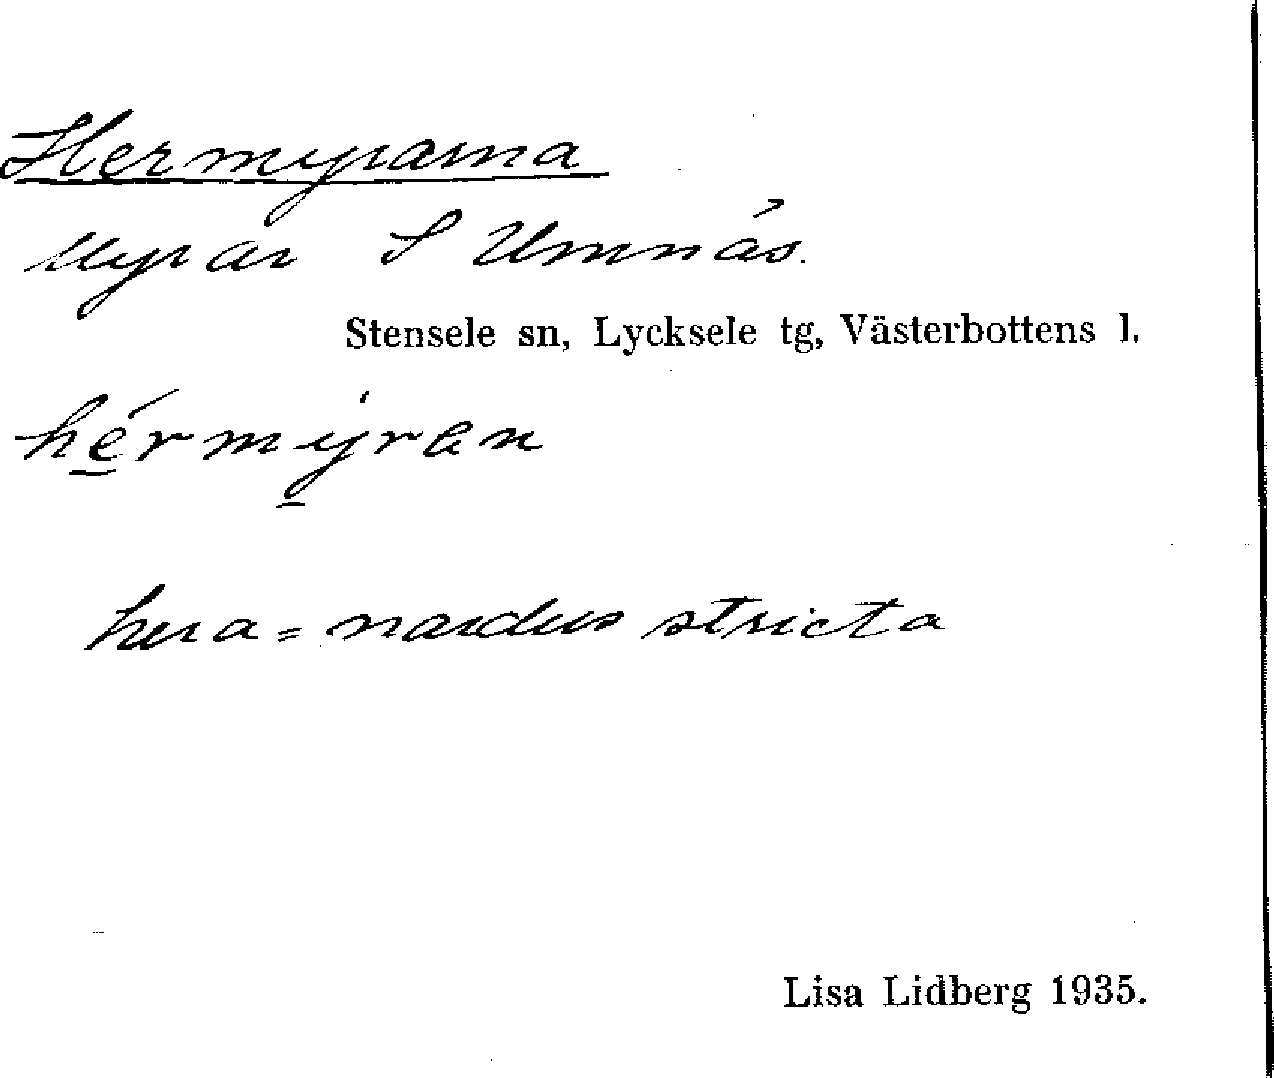 Hermyrarna
Myrar S Umnäs.
Stensele sn, Lycksele tg, Västerbottens l.
hérmyran
hera = nardus stricta
Lisa Lidberg 1935.